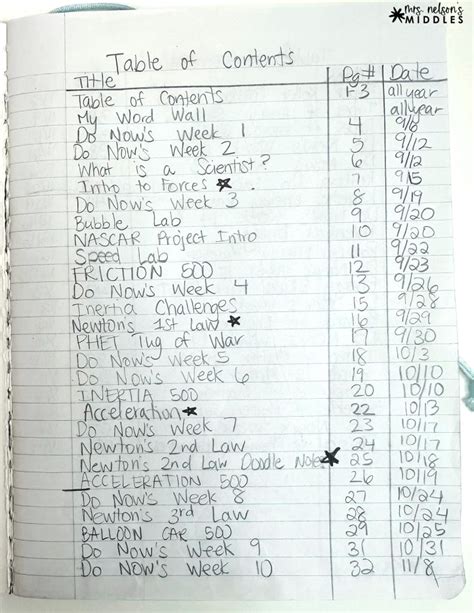 mrs. nelson's
MIDDLES
Table of Contents
Title Pg# Date
Table of Contents 1-3 all year
My Word Wall all year
Do Now's Week 1 4 9/8
Do Now's Week 2 5 9/12
What is a Scientist? 6 9/12
Intro to Forces ★ 7 9/15
Do Now's Week 3 8 9/19
Bubble Lab 9 9/20
NASCAR Project Intro 10 9/20
Speed Lab 11 9/22
FRICTION 500 12 9/23
Do Now's Week 4 13 9/26
Inertia Challenges 15 9/28
Newton's 1st Law ★ 16 9/29
PHET Tug of War 17 9/30
Do Now's Week 5 18 10/3
Do Now's Week 6 19 10/10
INERTIA 500 20 10/10
Acceleration ★ 22 10/13
Do Now's Week 7 23 10/17
Newton's 2nd Law 24 10/17
Newton's 2nd Law Doodle Notes ★ 25 10/18
ACCELERATION 500 26 10/19
Do Now's Week 8 27 10/24
Newton's 3rd Law 28 10/24
BALLOON CAR 500 29 10/25
Do Now's Week 9 31 10/31
Do Now's Week 10 32 11/8